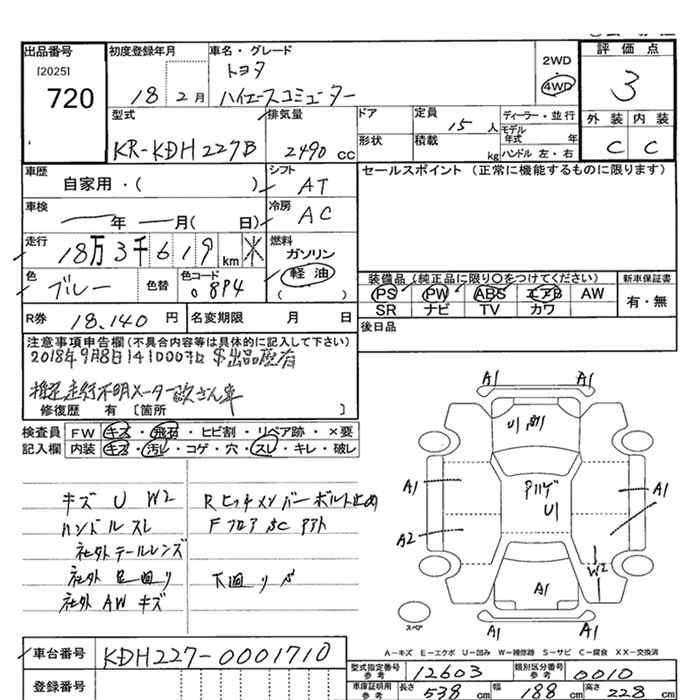 出品番号 初度登録年月 車名・グレード 2WD 評価点
[2025] トヨタ ・
720 18 2月 ハイエースコミューター 4WD 3
型式 排気量 ドア 定員 15 人 ディーラー・並行 外装 内装
KR-KDH227B 2490 cc 形状 積載 kg モデル年式 年 ハンドル 左・右 C C
車歴 シフト セールスポイント (正常に機能するものに限ります)
自家用・( ) AT
車検 年 月( 日) 冷房 AC
走行 18万3千619 km 燃料 ガソリン
色 ブルー 色替 色コード 8P4 軽油 ( )
装備品(純正品に限り○をつけてください) 新車保証書
PS PW ABS エアB AW 有・無
SR ナビ TV カワ
R券 18.140 円 名変期限 月 日 後日品
注意事項申告欄(不具合内容等は具体的に記入して下さい)
2018年9月8日141000キロ 出品歴有
走行不明メーター改ざん車
修復歴 有 [箇所 ]
検査員 FW キズ・飛石・ヒビ割・リペア跡・×要
記入欄 内装 キズ・汚レ・コゲ・穴・スレ・キレ・破レ
キズ U W2 Rヒッチメンバーボルト止め
ハンドルスレ Fフロア SC アト
社外テールレンズ
社外足回り 下回りサビ
社外AWキズ
A1 A1
U1
A1 U1 A1
A2 W2
A1
スペア A1 A1
A-キズ E-エクボ U-凹み W-補修跡 S-サビ C-腐食 XX-交換済
車台番号 KDH227-0001710
型式指定番号 参考 12603 類別区分番号 参考 0010
登録番号 車庫証明用 参考 長さ 538 cm 幅 188 cm 高さ 228 cm